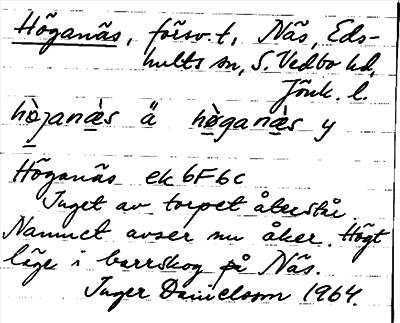 Höganäs, försv. t., Näs, Eds-
hults sn, S. Vedbo hd,
Jönk. l.
hò̱janæ̀s ä hø̱̀ganæ̀s y
Höganäs ek 6F6c
Inget av torpet återstår
Namnet avser nu åker. Högt
läge i barrskog på Näs.
Inger Danielsson 1964.